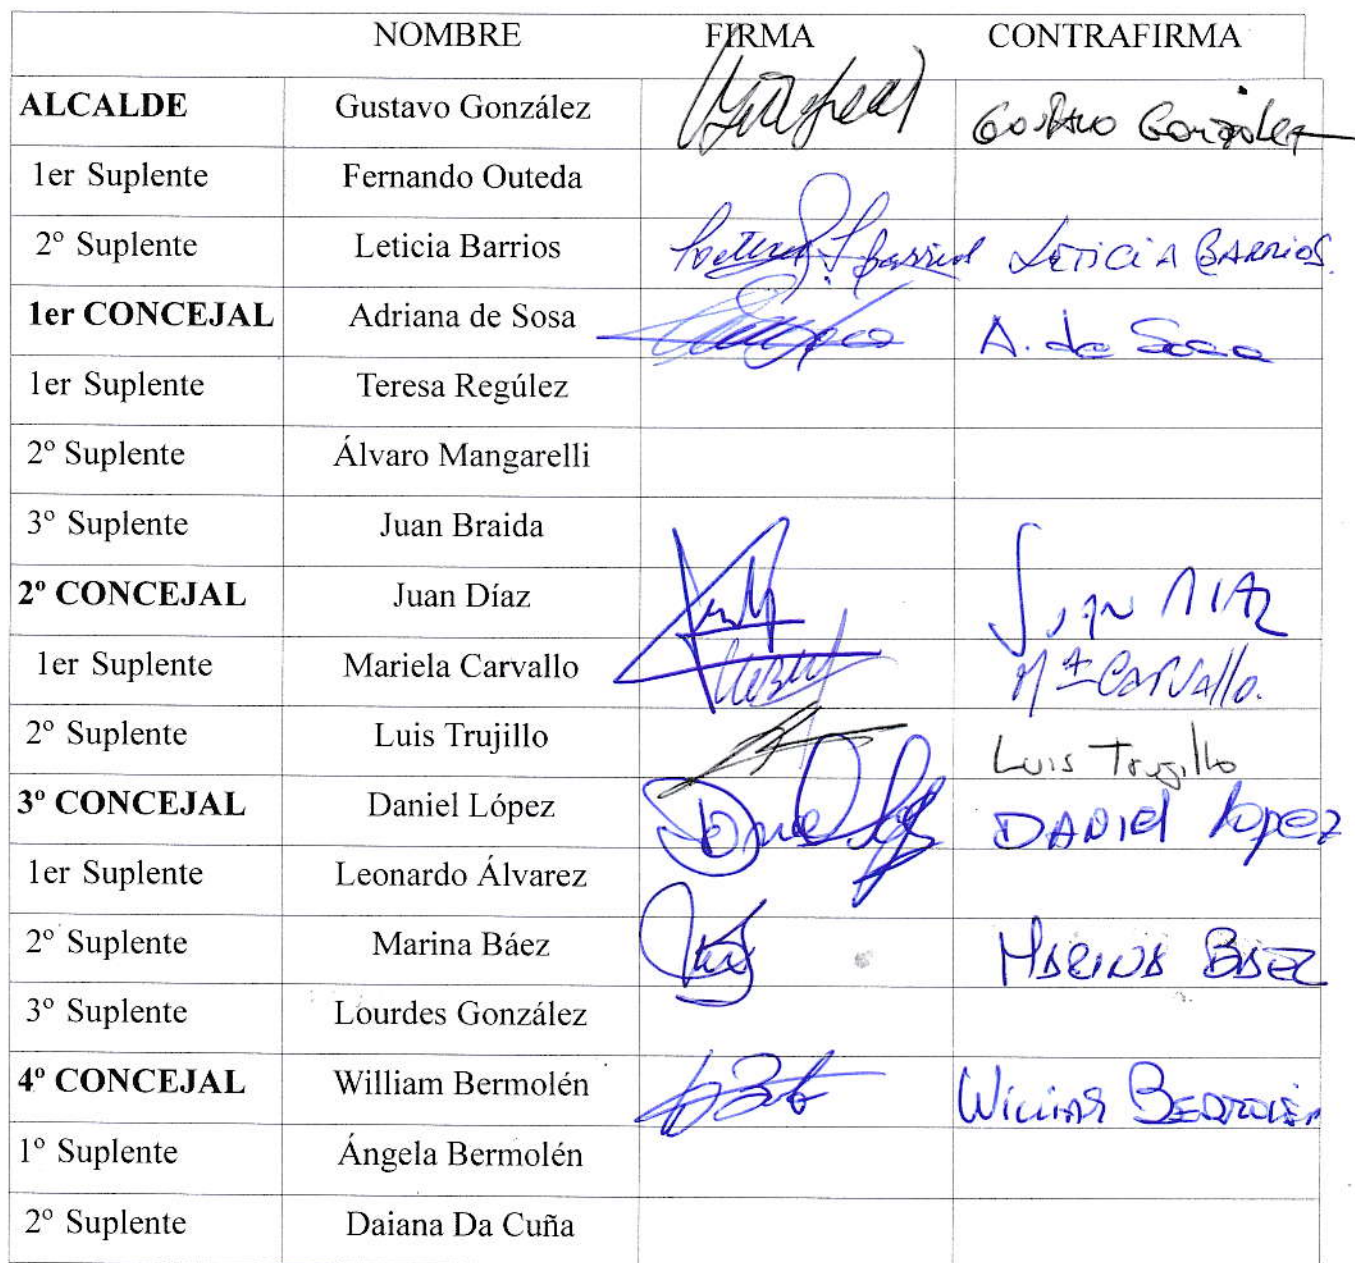 NOMBRE FIRMA CONTRAFIRMA
ALCALDE Gustavo González Gustavo González
1er Suplente Fernando Outeda
2º Suplente Leticia Barrios LETICIA BARRIOS.
1er CONCEJAL Adriana de Sosa A. de Sosa
1er Suplente Teresa Regúlez
2º Suplente Álvaro Mangarelli
3º Suplente Juan Braida
2º CONCEJAL Juan Díaz JUAN DIAZ
1er Suplente Mariela Carvallo Mª Carvallo.
2º Suplente Luis Trujillo Luis Trujillo
3º CONCEJAL Daniel López DANIEL lopez
1er Suplente Leonardo Álvarez
2º Suplente Marina Báez MARINA BAEZ
3º Suplente Lourdes González
4º CONCEJAL William Bermolén
1º Suplente Ángela Bermolén
2º Suplente Daiana Da Cuña